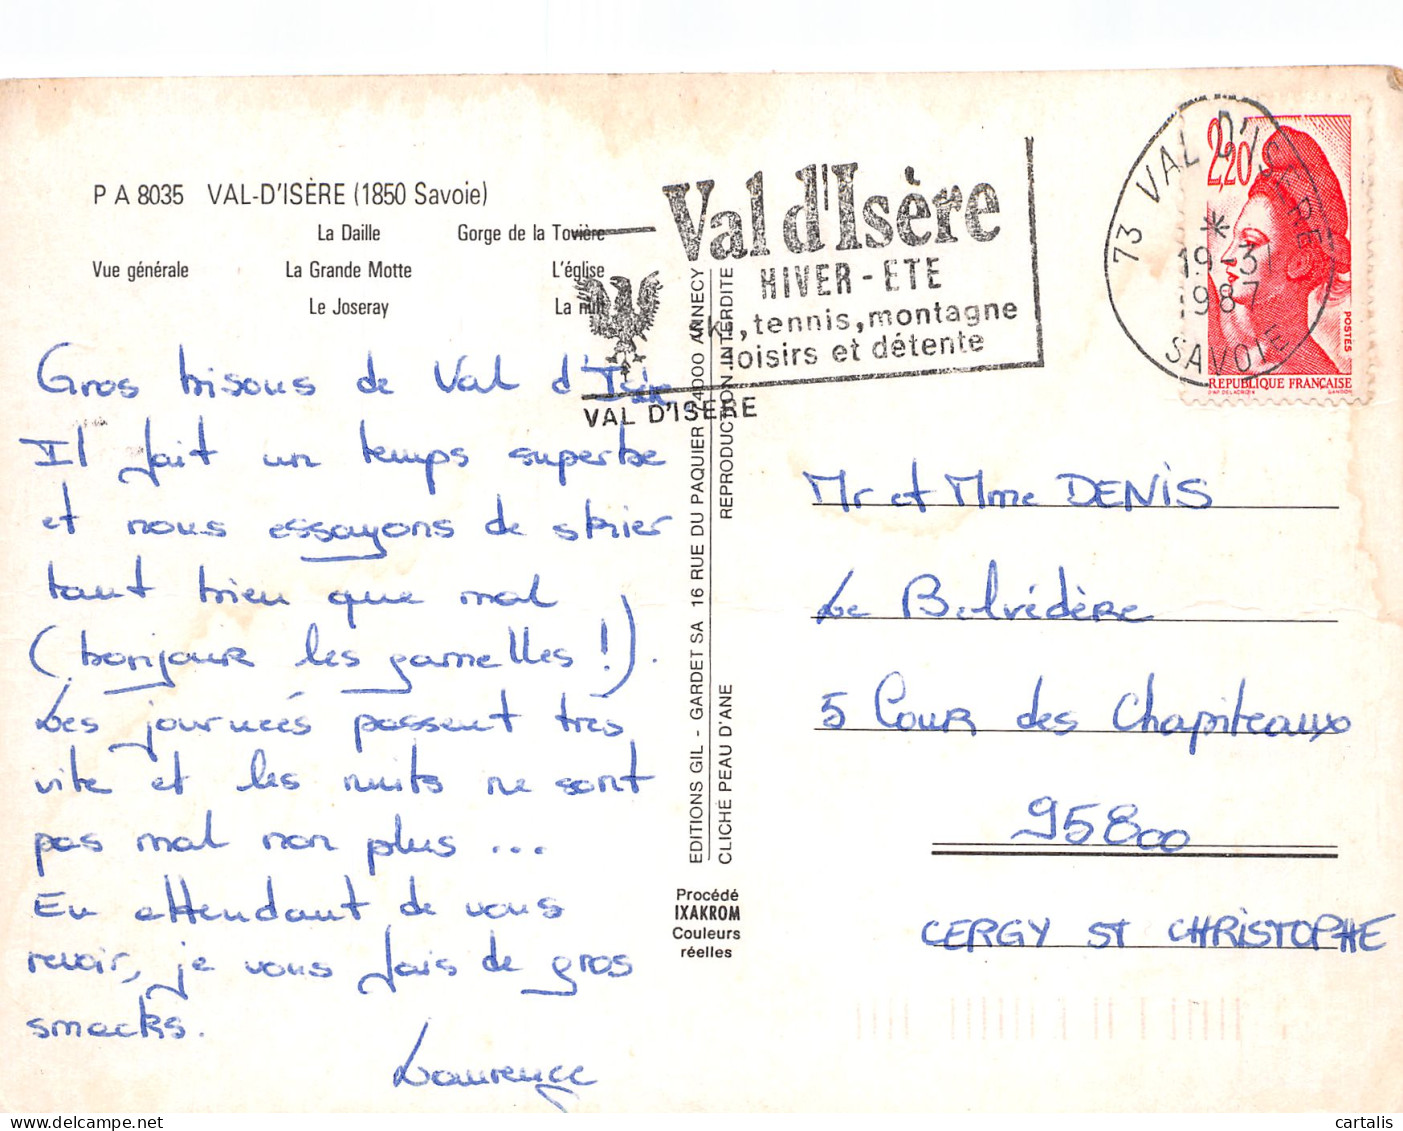 P A 8035 VAL-D'ISÈRE (1850 Savoie)
La Daille Gorge de la Tovière
Vue générale La Grande Motte L'église
Le Joseray La nuit
Gros bisous de Val d'Isère
Il fait un temps superbe
et nous essayons de skier
tant bien que mal
(bonjour les gamelles !).
Les journées passent très
vite et les nuits ne sont
pas mal non plus ...
En attendant de vous
revoir, je vous fais de gros
smacks.
Laurence
EDITIONS GIL - GARDET SA 16 RUE DU PAQUIER 74000 ANNECY
CLICHÉ PEAU D'ANE REPRODUCTION INTERDITE
Procédé
IXAKROM
Couleurs
réelles
Val d'Isère
HIVER - ETE
ski, tennis, montagne
loisirs et détente
VAL D'ISERE
73 VAL D'ISERE
19-3
1987
SAVOIE
2,20
POSTES
RÉPUBLIQUE FRANÇAISE
D'AP. DELACROIX GANDON
Mr et Mme DENIS
Le Belvédère
5 Cour des Chapiteaux
95800
CERGY ST CHRISTOPHE
cartalis
delcampe.net